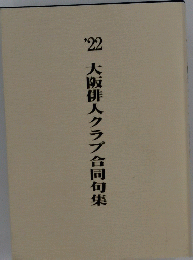 ’22
大阪俳人クラブ合同句集